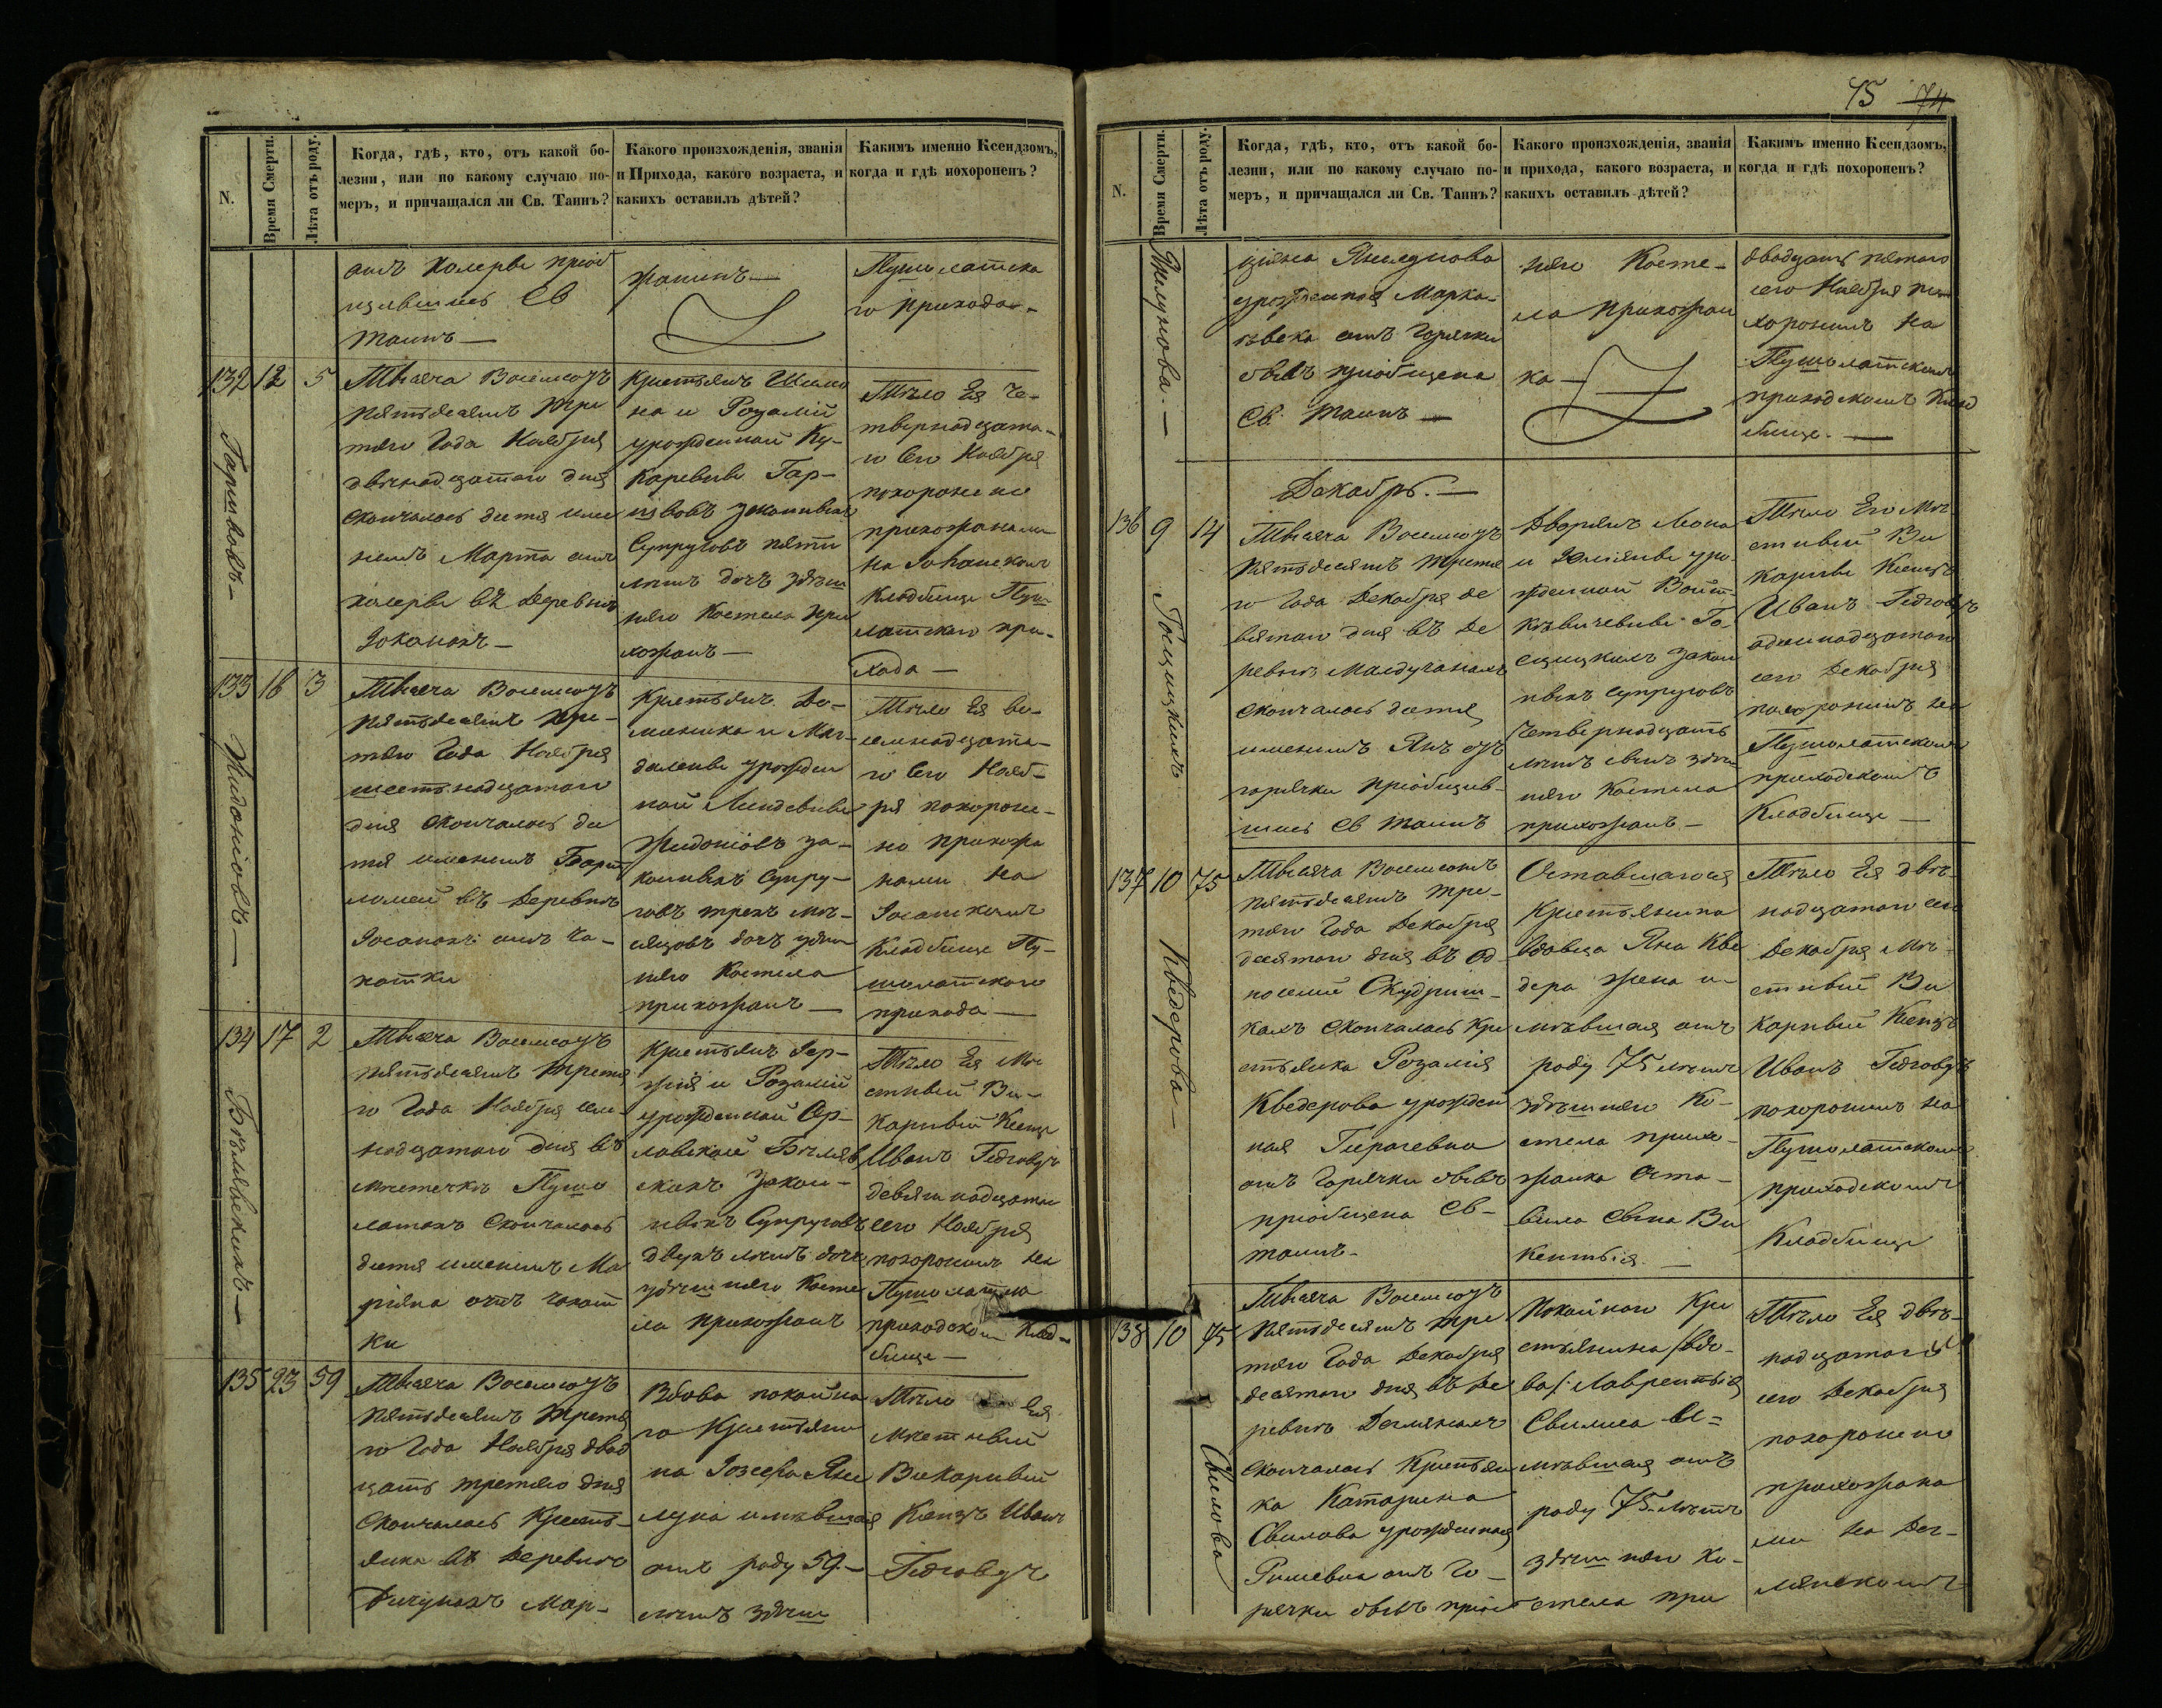 N.
Время Смерти.
Лѣта отъ роду.
Когда, гдѣ, кто, отъ какой бо-
лезни, или по какому случаю по-
меръ, и причащался ли Св. Таинъ?
Какого произхожденія, званія
и Прихода, какого возраста, и
какихъ оставилъ дѣтей?
Какимъ именно Ксендзомъ,
когда и гдѣ похороненъ?
отъ холеры пріоб
щившись Св
таинъ —
жанинъ —
Пушолатска
го прихода.
132 12 5
Тысяча Восемсотъ
пятьдесятъ тре
тяго Года Ноября
двѣнадцатаго дня
скончалось дитя име
немъ Марта отъ
холеры въ Деревнѣ
на и Розаліи
урожденной Ку-
каревны Гар-
законныхъ
Супруговъ пяти
лѣтъ дочь здѣш
няго Костела при
хожанъ —
Тѣло Ея че-
тверкнадцата-
го сего Ноября
похоронено
прихожанами
на
Кладбище Пуш-
латскаго при-
хода —
133 16 3
Жидоніовъ —
Тысяча Восемсотъ
пятьдесятъ тре-
тяго Года Ноября
шестьнадцатаго
дня скончалось ди
тя именемъ
въ Деревнѣ
отъ ча-
хотки
Крестьянъ До-
миника и Маг-
далены урожден
ной
Жидоніовъ за-
конныхъ Супру-
говъ трехъ мѣ-
сяцовъ дочь здѣш
няго Костела
прихожанъ —
Тѣло Ея во-
семнадцата-
го сего Нояб-
ря похороне-
но прихожа
нами на
Кладбище Пу-
шолатскаго
прихода —
134 17 2
Бѣлявскихъ —
Тысяча Восемсотъ
пятьдесятъ третя
го Года Ноября сем-
надцатаго дня въ
мѣстечкѣ Пушо
латахъ скончалось
дитя именемъ Ма
ріяна отъ чахот
ки
и Розаліи
урожденной Ор-
ловской Бѣляв
скихъ закон-
ныхъ Супруговъ
двухъ лѣтъ дочь
здѣшняго Косте
ла прихожанъ
Тѣло Ея Мѣ
стный Ви-
карный Ксендзъ
Иванъ Гедговдъ
девятнадцатаго
сего Ноября
похоронилъ на
приходскомъ Клад-
бище —
135 23 59
Тысяча Восемсотъ
пятьдесятъ третья
го Года Ноября двад
цать третяго дня
скончалась Кресть-
янка въ Деревнѣ
Мар-
Вдова покойна
го Крестьяни
на Іозефа Яне
луна имѣвшая
отъ роду 59.—
лѣтъ здѣш
Тѣло Ея
мѣстный
Викарный
Ксендзъ Иванъ
Гедговдъ
45 74
N.
Время Смерти.
Лѣта отъ роду.
Когда, гдѣ, кто, отъ какой бо-
лезни, или по какому случаю по-
меръ, и причащался ли Св. Таинъ?
Какого произхожденія, званія
и прихода, какого возраста, и
какихъ оставилъ дѣтей?
Какимъ именно Ксендзомъ,
когда и гдѣ похороненъ?
Янелунова. —
ціяна Янелунова
урожденная
отъ Горячки
бывъ пріобщена
Св. Таинъ —
няго Косте-
ла прихожан
ка —
двадцать пятаго
сего Ноября по
хоронилъ на
Пушолатскомъ
приходскомъ Клад
бище. —
Декабрь. —
136 9 14
Тысяча Восемсотъ
пятьдесятъ третя
го Года Декабря де
вятаго дня въ Де
ревнѣ
скончалось дитя
именемъ Янъ отъ
горячки пріобщив-
шись Св Таинъ
Дворянъ Леона
и уро-
жденной
закон
ныхъ супруговъ
Четвернадцать
лѣтъ сынъ здѣш
няго Костела
прихожанъ —
Тѣло Его Мѣ-
стный Ви
карный Ксендзъ
Иванъ Гедговдъ
одиннадцатаго
сего Декабря
похоронилъ на
Пушолатскомъ
приходскомъ
Кладбище —
137 10 75
Кведерова —
Тысяча Восемсотъ
пятьдесятъ тре-
тяго Года Декабря
десятаго дня въ Од-
носеліи Скудриш-
кахъ скончалась Кре
стьянка Розалія
Кведерова урожден
ная
отъ Горячки бывъ
пріобщена Св-
таинъ.
Оставшагося
Крестьянина
вдовца Яна Кве
дера жена и-
мѣвшая отъ
роду 75 лѣтъ
здѣшняго Ко-
стела прихо-
жанка Оста-
вила сына Ви
кентыя. —
Тѣло Ея двѣ-
надцатаго сего
Декабря Мѣ-
стный Ви
карный Ксендзъ
Иванъ Гедговдъ
похоронилъ на
Пушолатскомъ
приходскомъ
Кладбище
138 10 75
Свилова
Тысяча Восемсотъ
пятьдесятъ тре
тяго Года Декабря
десятаго дня въ Де
ревнѣ
скончалась Крестьян
ка Катарина
Свилова урожденная
отъ Го-
рячки бывъ пріоб
Покойнаго Кре
стьянина /вдо-
ва/ Лаврентыя
Свилиса И-
мѣвшая отъ
роду 75. лѣтъ
здѣшняго Ко-
стела при
Тѣло Ея двѣ-
надцатаго
сего Декабря
похоронено
прихожана
ми на Дег-
лянскомъ